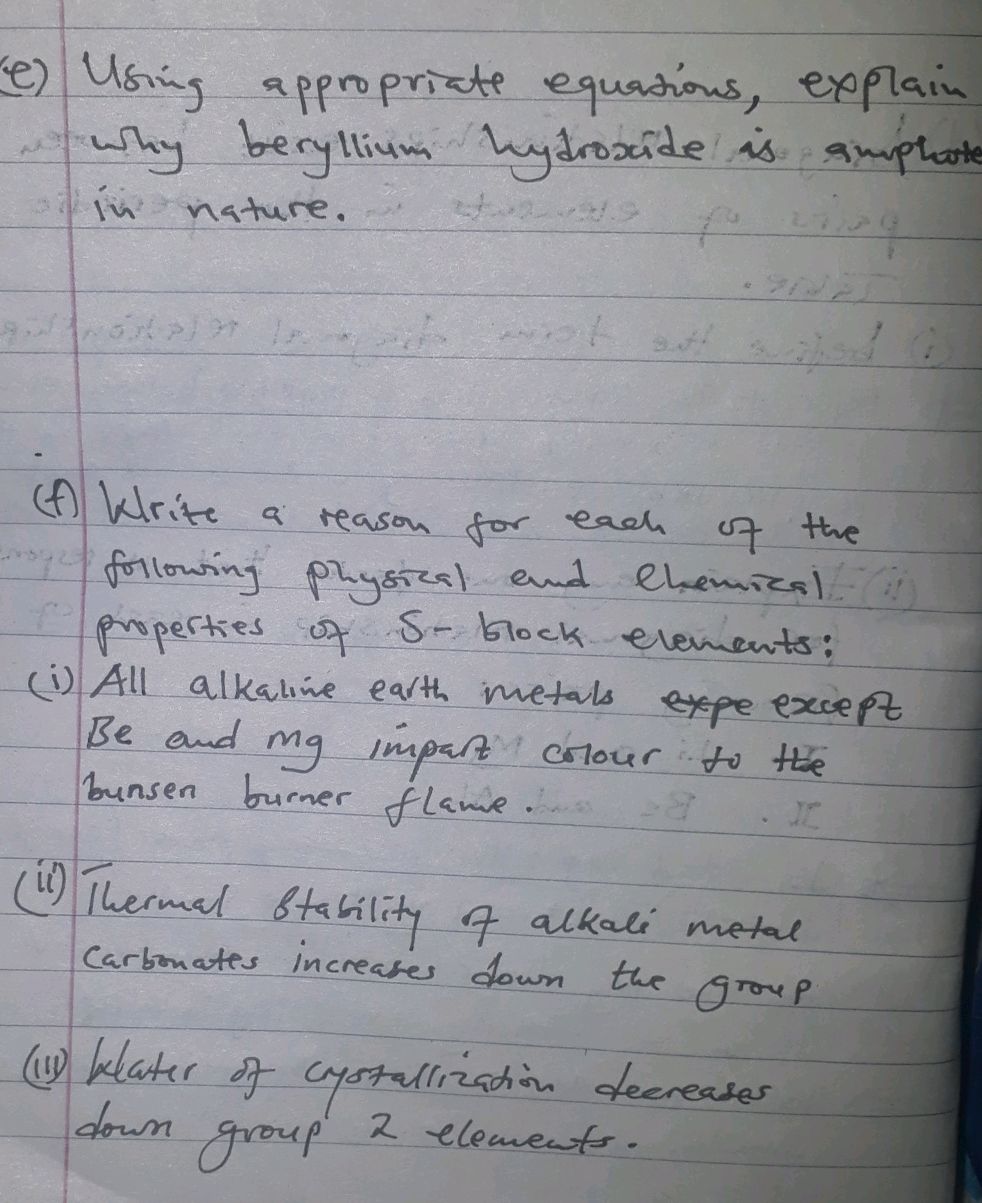 (e) Using appropriate equations, explain
why beryllium hydroxide is amphote
in nature.
(f) Write a reason for each of the
following physical and chemical
properties of S-block elements:
(i) All alkaline earth metals expe except
Be and mg impart colour to the
bunsen burner flame.
(ii) Thermal stability of alkali metal
carbonates increases down the group
(iii) Water of crystallization decreases
down group 2 elements.